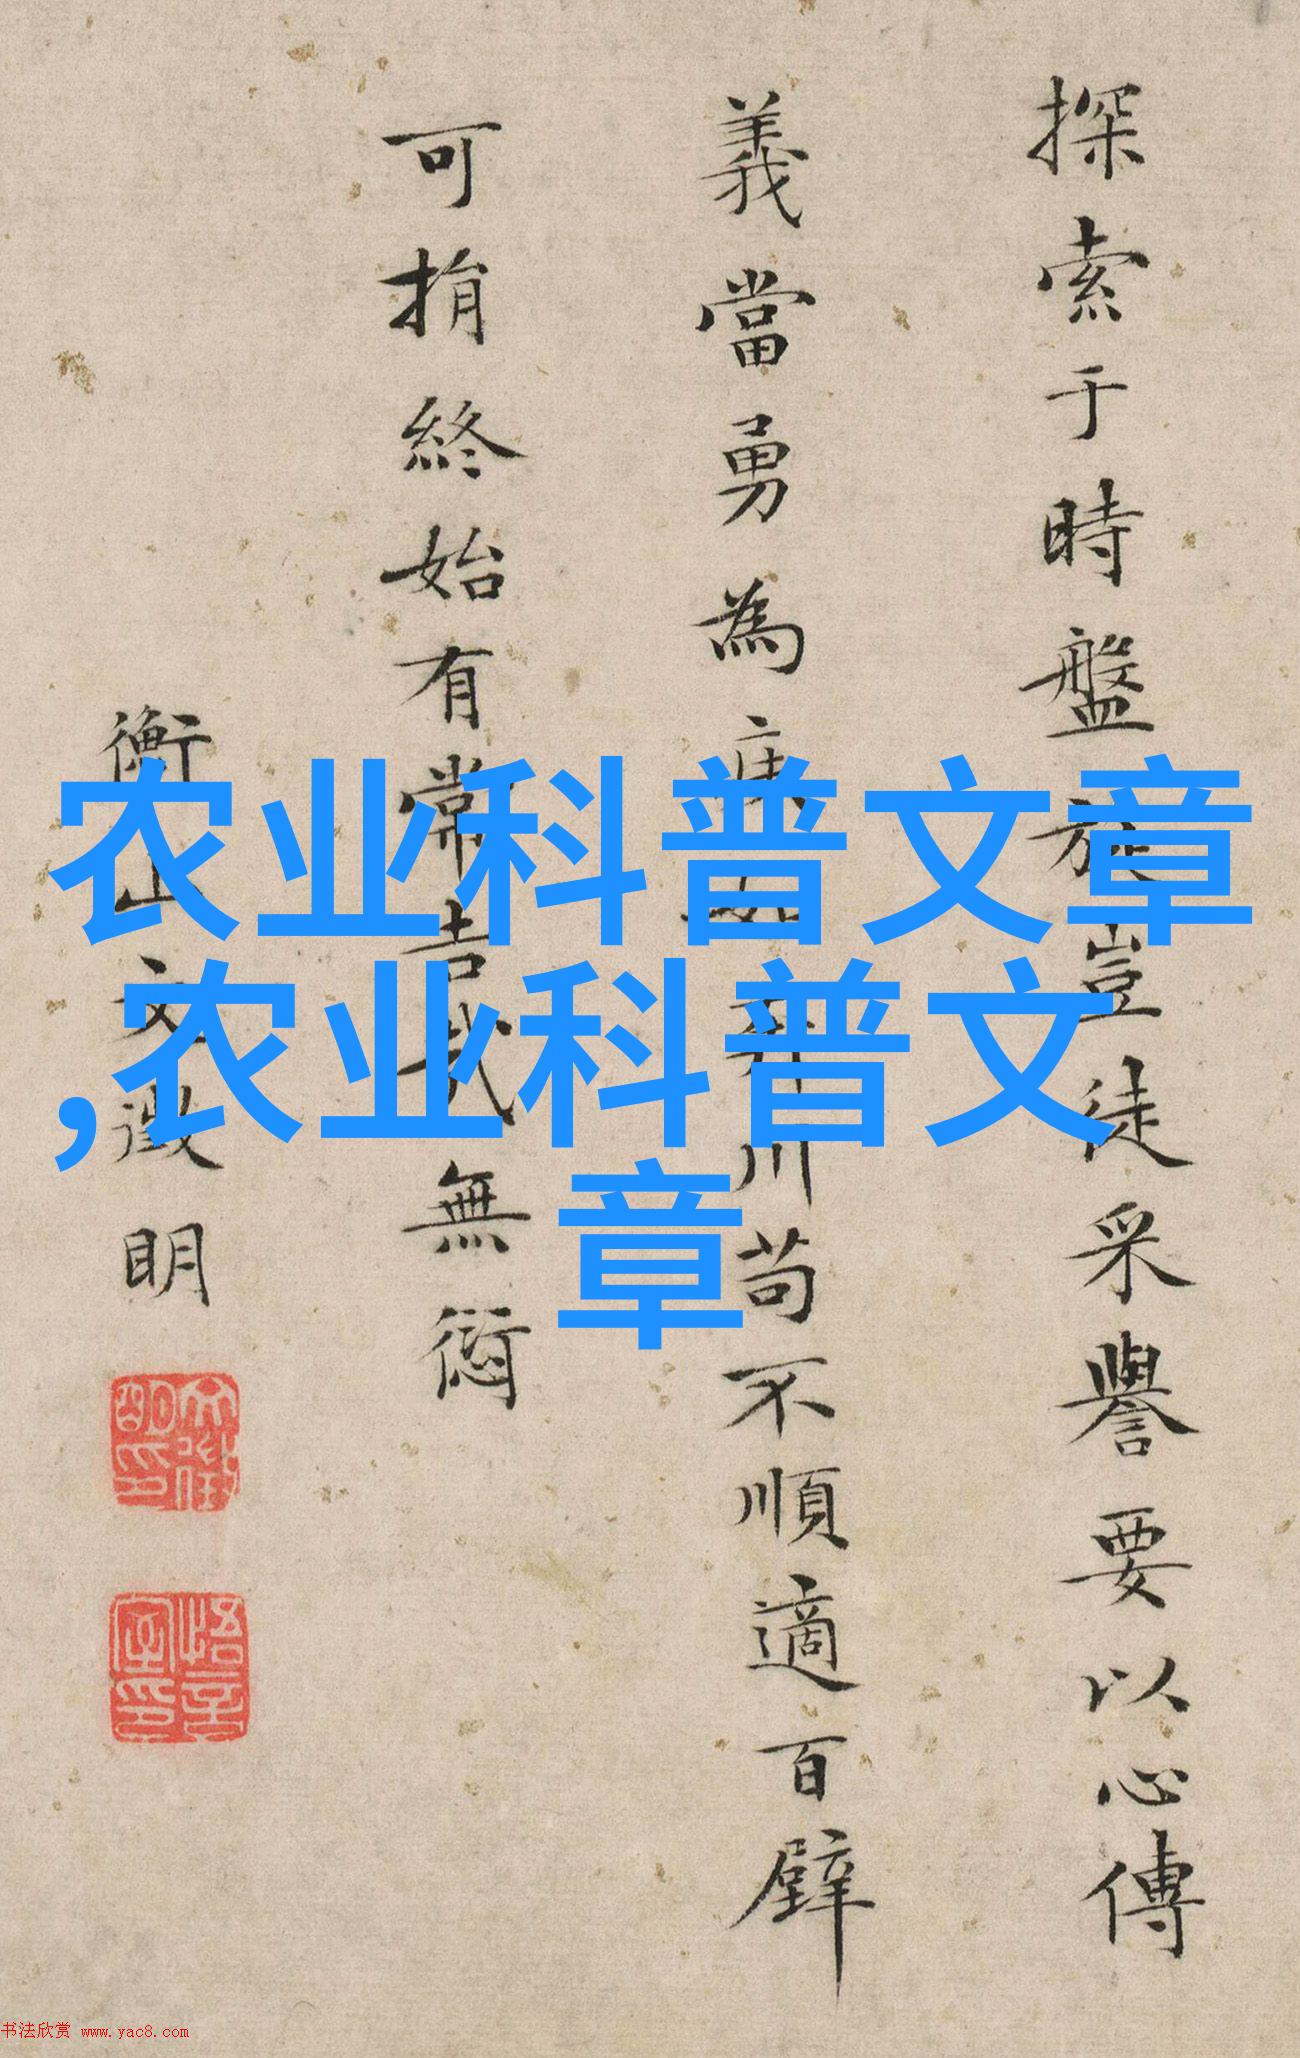 探索于時盤旋豈徒采譽要以心傳
義當勇為 川苟不順適百
可捐終始有常吉哉無愆
衡山文徵明
农业科普文章
,农业科普文
章
书法欣赏 www.yac8.com